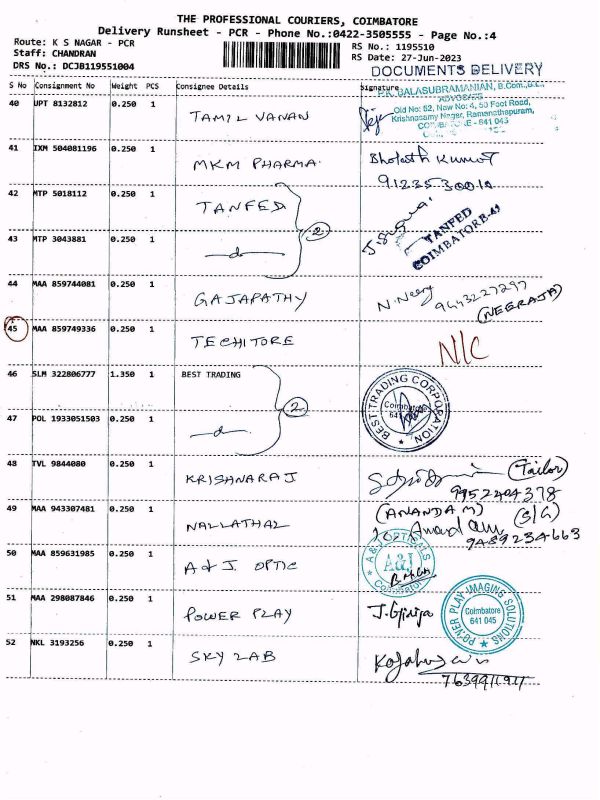 THE PROFESSIONAL COURIERS, COIMBATORE
Delivery Runsheet - PCR - Phone No.:0422-3505555 - Page No.:4
Route: K S NAGAR - PCR
RS No.: 1195510
Staff: CHANDRAN
RS Date: 27-Jun-2023
DRS No.: DCJB119551004
DOCUMENTS DELIVERY
S No Consignment No Weight PCS Consignee Details Signature
40 UPT 8132812 0.250 1 TAMIL VANAN
BALASUBRAMANIAN, B.Com.,
ADVOCATE
Old No: 52, New No: 4, 50 Feet Road,
Krishnasamy Nagar, Ramanathapuram,
COIMBATORE - 641 045
41 IXM 504081196 0.250 1 MKM PHARMA.
Kumar
42 MTP 5018112 0.250 1 TANFED
2
TANFED
COIMBATORE-43
43 MTP 3043881 0.250 1 —d—
44 MAA 859744081 0.250 1 GAJAPATHY
N. Neeraj 9443227297
(NEERAJA)
45 MAA 859749336 0.250 1 TECHITORE
N/C
46 SLM 322806777 1.350 1 BEST TRADING
2
BEST TRADING CORPORATION
Coimbatore
47 POL 1933051503 0.250 1 —d—
48 TVL 9844080 0.250 1 KRISHNARAJ
(Tailor)
9952404378
49 MAA 943307481 0.250 1 NALLATHAL
(ANANDA M) (S/G)
9489234663
50 MAA 859631985 0.250 1 A & J. OPTIC
A & J OPTICALS
A&J
51 MAA 298087846 0.250 1 POWER PLAY
J. Girija
POWER PLAY IMAGING SOLUTIONS
Coimbatore
641 045
52 NKL 3193256 0.250 1 SKY LAB